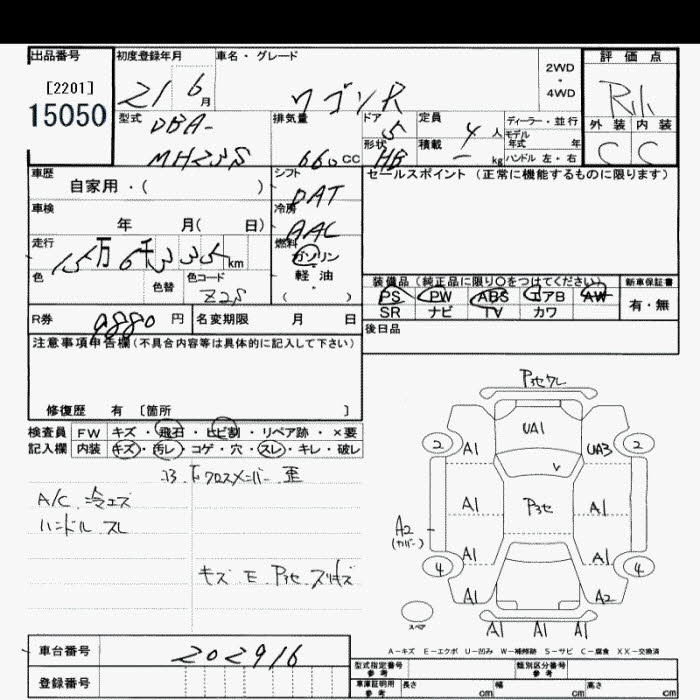 出品番号 初度登録年月 車名・グレード 評価点
[2201] 2WD
・
4WD
15050 21 6月 ワゴンR
型式 DBA- 排気量 ドア 5 定員 4人 ディーラー・並行
モデル年式 年 外装 内装
MH23S 660cc 形状 HB 積載 ー kg ハンドル 左・右 C C
車歴 シフト セールスポイント(正常に機能するものに限ります)
自家用・( ) DAT
車検 冷房
年 月( 日) AAC
走行 燃料
15万6千335km ガソリン
色 色替 色コード 軽油・
Z2S ( )
装備品(純正品に限り○をつけてください) 新車保証書
PS PW ABS エアB AW 有・無
SR ナビ TV カワ
R券 9880円 名変期限 月 日 後日品
注意事項申告欄(不具合内容等は具体的に記入して下さい)
修復歴 有 [箇所 ]
検査員 FW キズ・飛石・ヒビ割・リペア跡・×要
記入欄 内装 キズ・汚レ・コゲ・穴・スレ・キレ・破レ
コクロスメンバー 歪
A/C 冷エズ
ハンドル スレ
キズ E P3セ スリキズ
P3セワレ
UA1
2 A1 UA3 2
P3セ
A1 A1
A2
(カバー)
A1 A1
4 4
A1 A2
スペア
A1 A1 A1
A-キズ E-エクボ U-凹み W-補修跡 S-サビ C-腐食 XX-交換済
車台番号 202916
登録番号
型式指定番号 参考 類別区分番号 参考
車庫証明用 参考 長さ cm 幅 cm 高さ cm